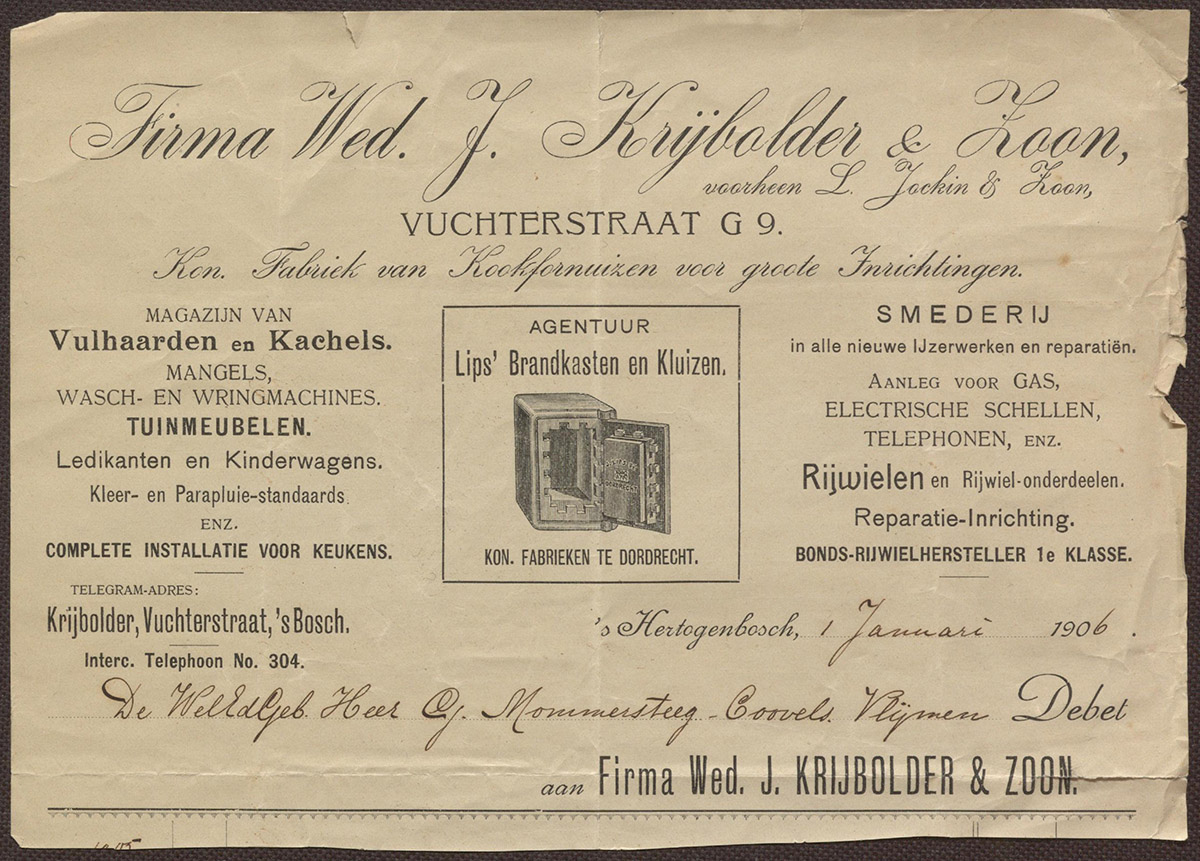 Firma Wed. J. Krijbolder & Zoon,
voorheen L. Jockin & Zoon,
VUCHTERSTRAAT G 9.
Kon. Fabriek van Kookfornuizen voor groote Inrichtingen.
MAGAZIJN VAN
Vulhaarden en Kachels.
MANGELS,
WASCH- EN WRINGMACHINES.
TUINMEUBELEN.
Ledikanten en Kinderwagens.
Kleer- en Parapluie-standaards
ENZ.
COMPLETE INSTALLATIE VOOR KEUKENS.
TELEGRAM-ADRES:
Krijbolder, Vuchterstraat, 's Bosch.
Interc. Telephoon No. 304.
AGENTUUR
Lips' Brandkasten en Kluizen.
DORDRECHT
KON. FABRIEKEN TE DORDRECHT.
SMEDERIJ
in alle nieuwe IJzerwerken en reparatiën.
AANLEG VOOR GAS,
ELECTRISCHE SCHELLEN,
TELEPHONEN, ENZ.
Rijwielen en Rijwiel-onderdeelen.
Reparatie-Inrichting.
BONDS-RIJWIELHERSTELLER 1e KLASSE.
's Hertogenbosch, 1 Januari 1906.
De WelEdGeb. Heer Mommersteeg-Coovels. Vlijmen Debet
aan Firma Wed. J. KRIJBOLDER & ZOON.